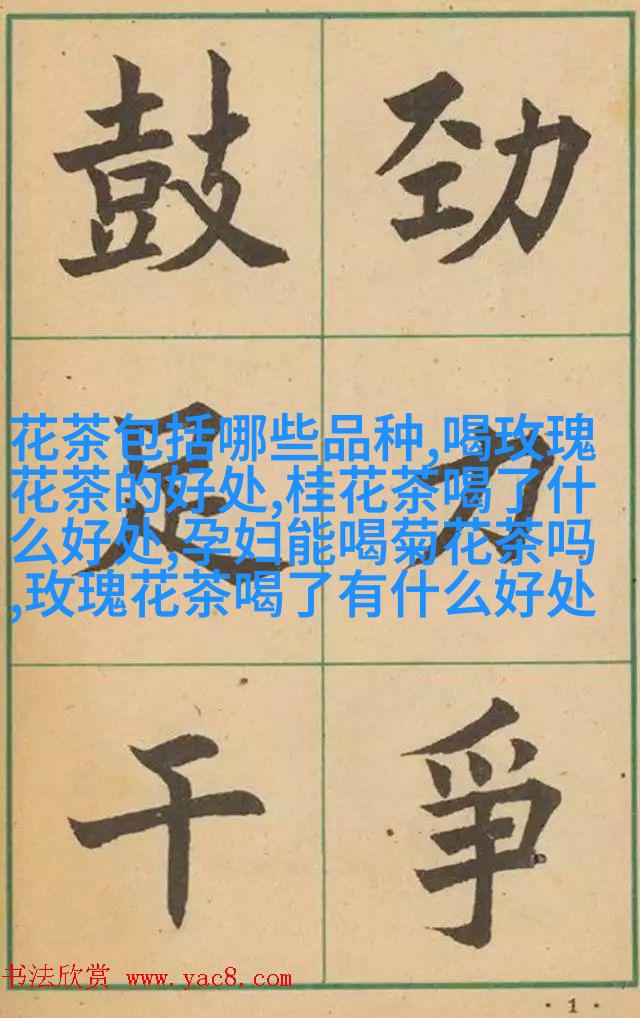 鼓足干
劲力爭
花茶包括哪些品种,喝玫瑰
花茶的好处,桂花茶喝了什
么好处,孕妇能喝菊花茶吗
,玫瑰花茶喝了有什么好处
书法欣赏 www.yac8.com
· 1 ·